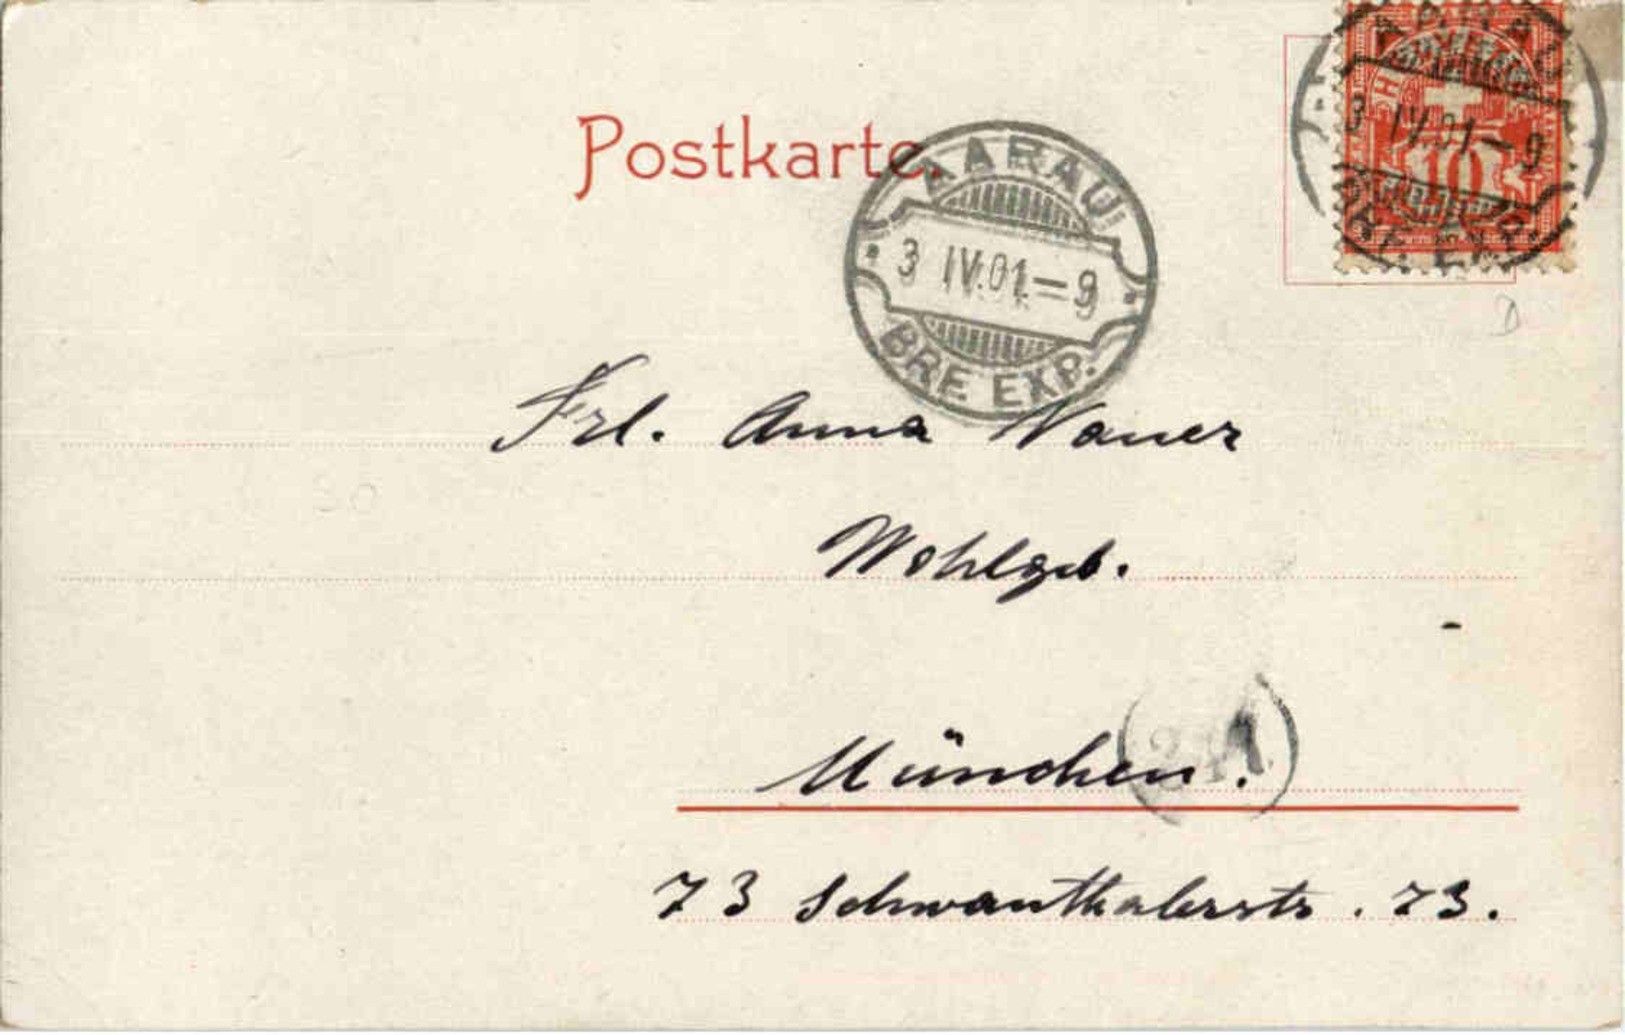 Postkarte.
AARAU
3 IV.01.–9
BRE EXP.
AARAU
3 IV.01.–9
BRF. EXP.
10
Frl. Anna Nauer
Wohlgeb.
München.
73 Schwanthalerstr. 73.